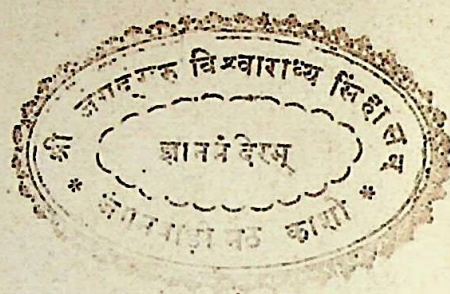 श्री जगद्गुरु विश्वाराध्य सिंहासन
ज्ञानमंदिरम्
जंगमवाड़ी मठ काशी